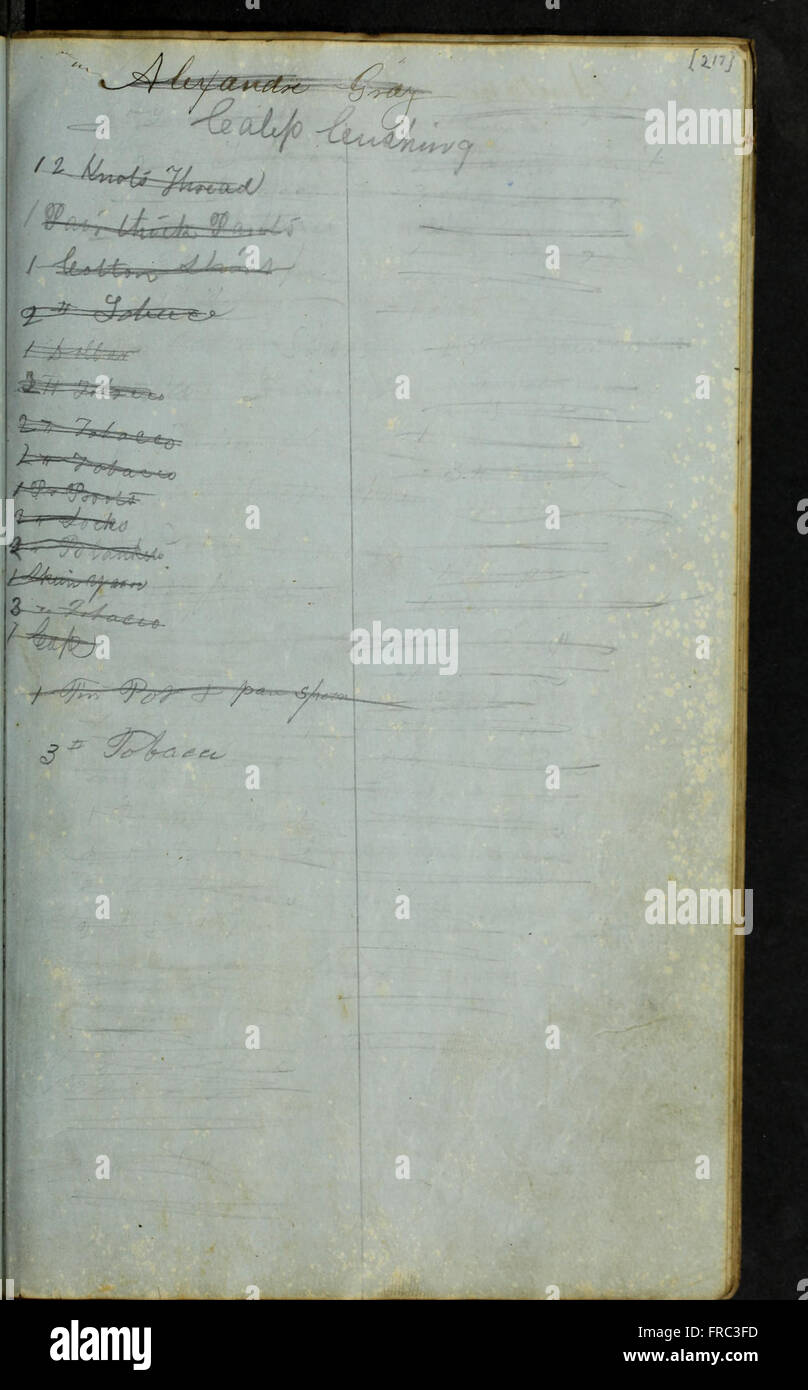 [217]
Alexandre Gray
Caleb Cushing
12 Knots Thread
1 Pair thick Pants
1 Cotton Shirt
2 " Tobacco
1 Dollar
3 " Tobacco
2 " Tobacco
2 " Tobacco
1 Pr Boots
2 " Socks
2 "
1 Skein yarn
3 " Tobacco
1 Cap
1 Tin Pot & pan spoon
3 " Tobacco
alamy
alamy
Image ID: FRC3FD
www.alamy.com